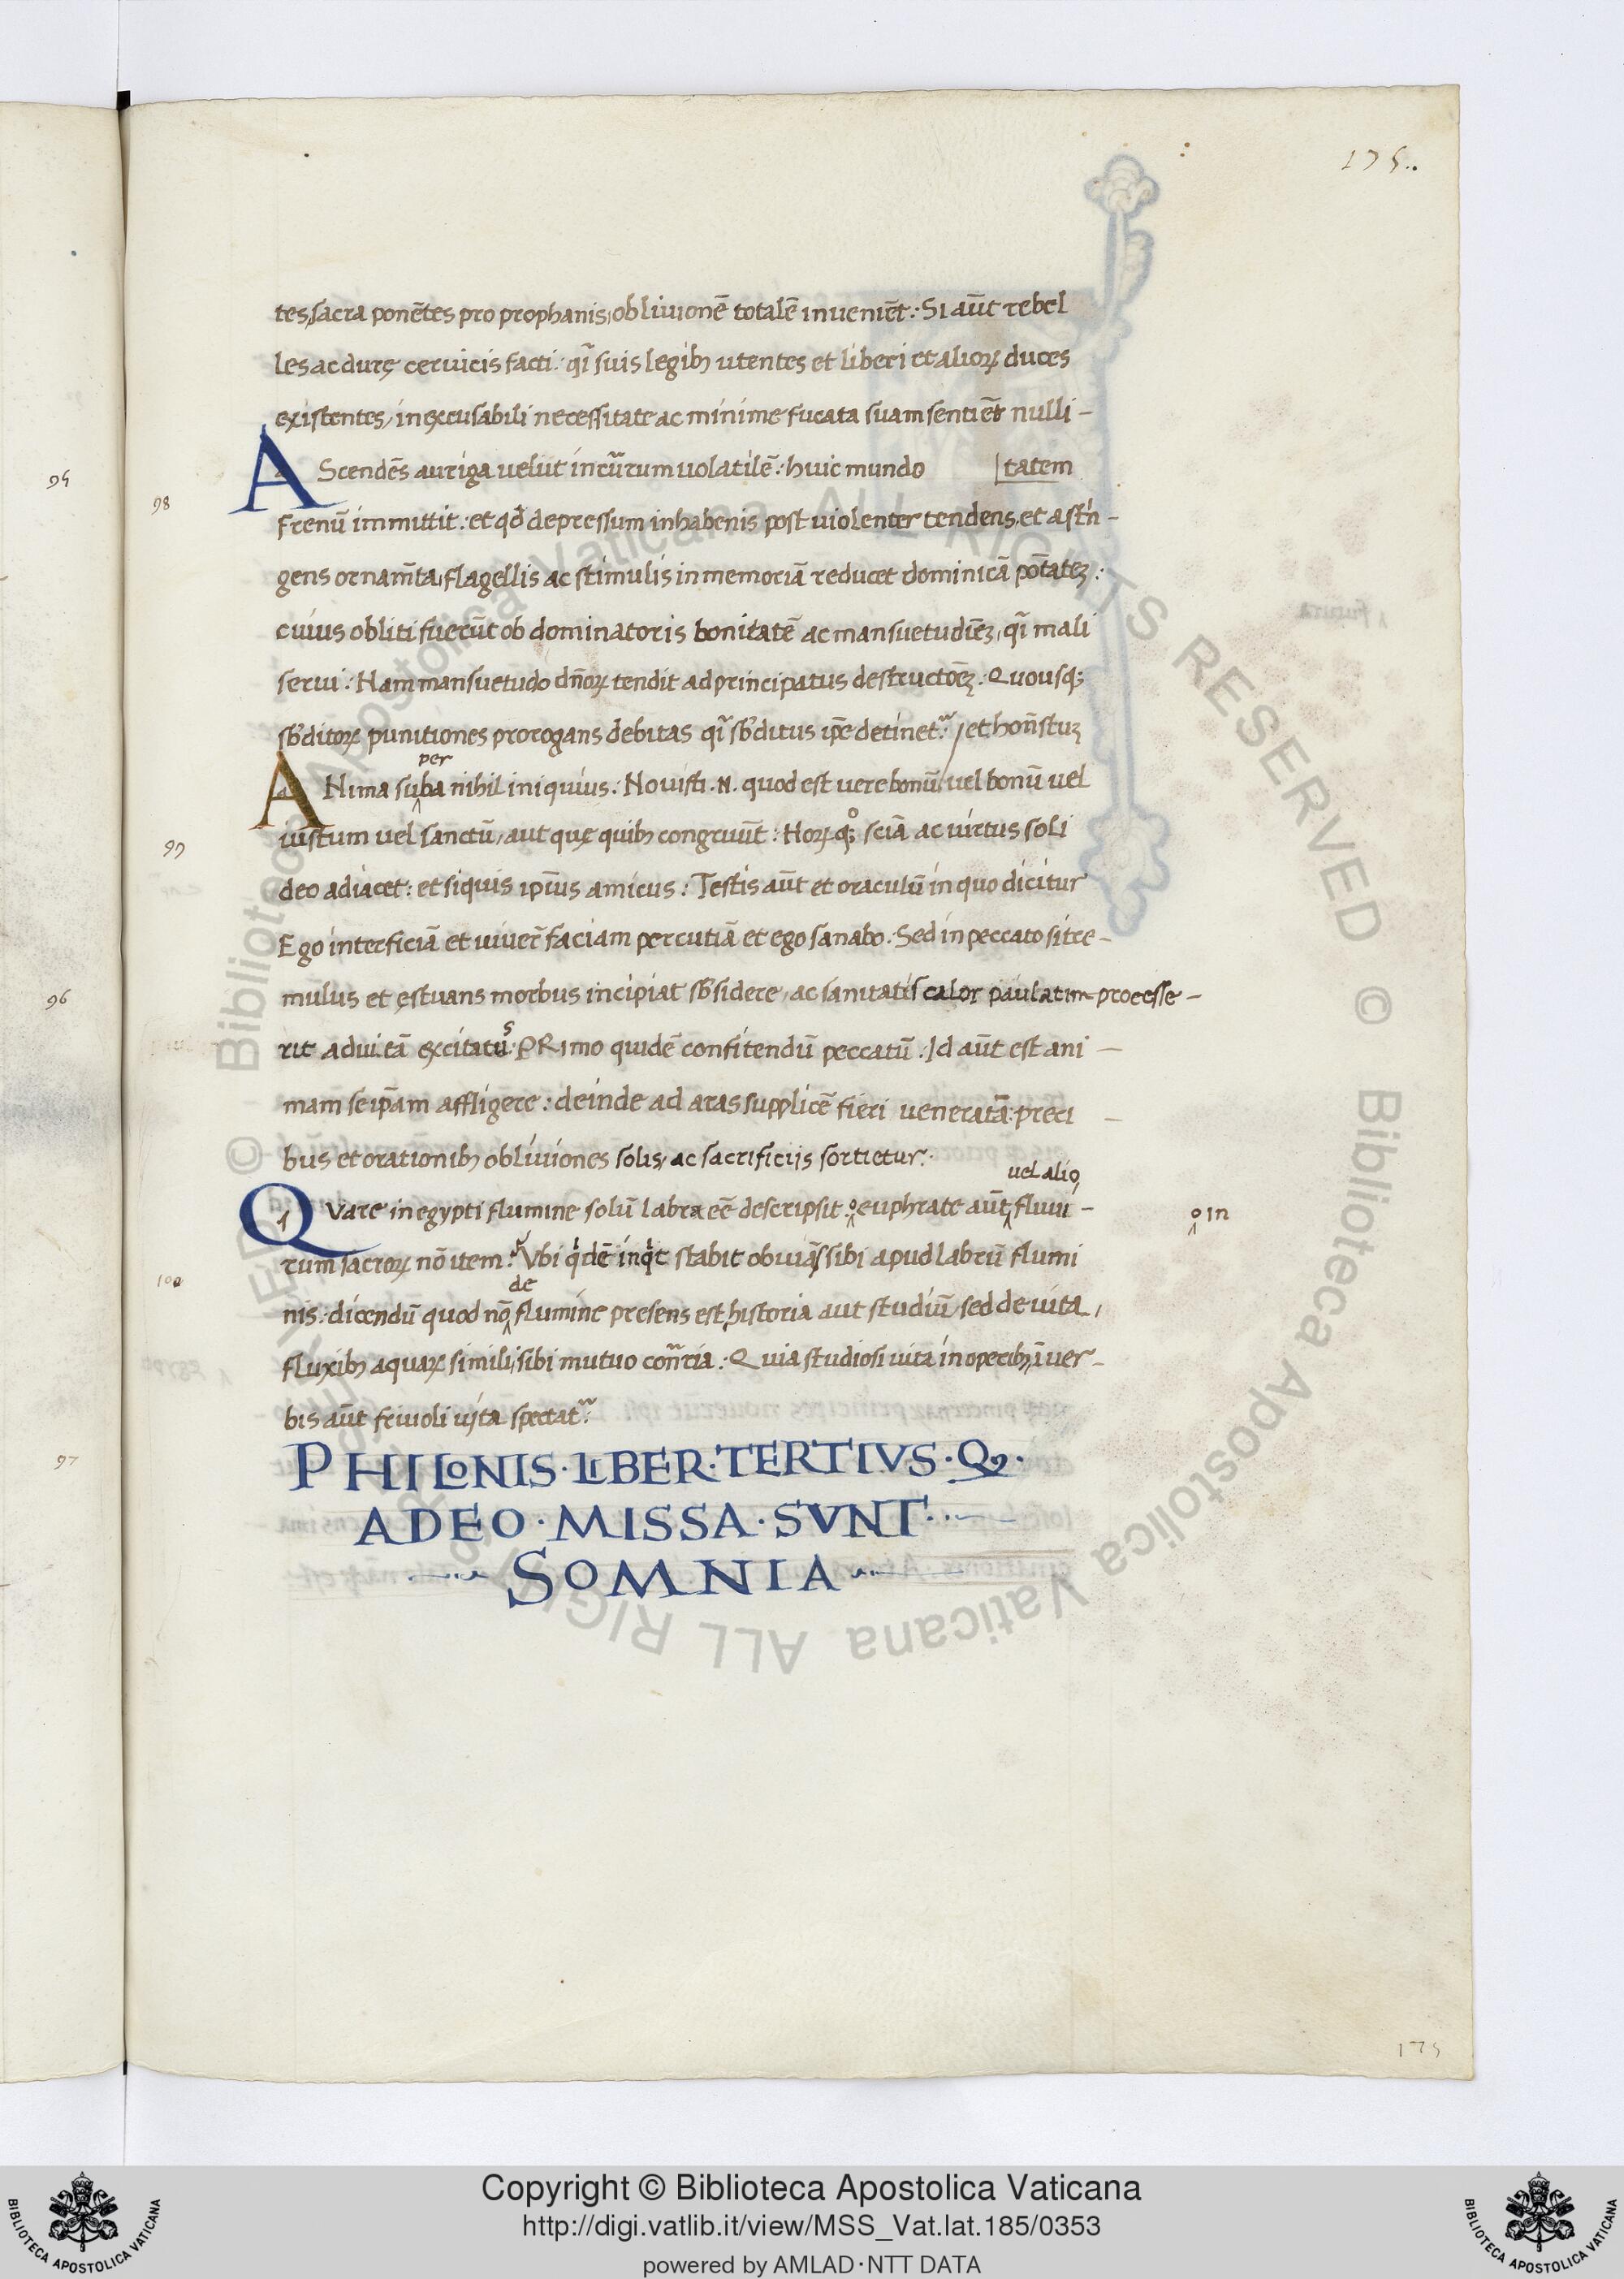 175..
tes, sacra ponẽtes pro prophanis, obliuionẽ totalẽ inueniẽt: Si aũt rebel
les ac durę ceruicis facti: qĩ suis legibꝫ utentes et liberi et alioꝝ duces
existentes, inexcusabili necessitate ac minime fucata suam sentiẽt nulli-
AScendẽs auriga uelut in cũrum uolatilẽ: huic mundo |tatem
94
98
frenũ immittit: et qđ depressum in habenis post uiolenter tendens, et astrĩ-
gens ornam̃ta, flagellis ac stimulis in memoriã reducet dominicã põtatẽꝫ:
cuius obliti fuerũt ob dominatoris bonitatẽ ac mansuetudiẽꝫ, qĩ mali
serui: Nam mansuetudo dñoꝝ tendit ad principatus destructõeꝫ. Quousqꝫ
sbditoꝝ punitiones prorogans debitas qĩ sbditus ip̃e detinet: / et hoñstuꝫ
per
ANima suba nihil iniquius: Nouisti .N. quod est uere bonũ / uel bonũ uel
iustum uel sanctũ, aut quę quibꝫ congruũt: Hoꝝ qꝫ° sciã ac uirtus soli
99
deo adiacet: et siquis ip̃ius amicus: Testis aũt et oraculũ in quo dicitur
Ego interficiã et uiuer̃ faciam percutiã et ego sanabo: Sed in peccato sit re-
mulus et ęstuans morbus incipiat sbsidere, ac sanitatis calor paulatim processe-
96
s
rit ad uitã excitatũ: PRimo quidẽ confitendũ peccatũ: Id aũt est ani-
mam seip̃am affligere: deinde ad aras supplicẽ fieri ueneratã: preci-
bus et orationibꝫ obliuiones solis, ac sacrificiis sortietur:
uel alio,
QVare in egypti flumine solũ labra eẽ descripsit: ° euphrate aũt fluuii-
° in
rum sacroꝝ nõ item: Vbi qdẽ inqt stabit obuiãs sibi apud labrũ flumi
100
de
nis: dicendũ quod nõ flumine presens est historia aut studiũ, sed de uita,
fluxibꝫ aquaꝝ simili, sibi mutuo cõtria: Quia studiosi uita in operibꝫ, ĩ uer-
bis aũt friuoli uita spectat:
97
PHILONIS · LIBER · TERTIVS · Qꝫ ·
A DEO · MISSA · SVNT ·
SOMNIA
175
© Biblioteca Apostolica Vaticana ALL RIGHTS RESERVED © Biblioteca Apostolica Vaticana ALL RIGHTS RESERVED
BIBLIOTECA APOSTOLICA VATICANA
Copyright © Biblioteca Apostolica Vaticana
http://digi.vatlib.it/view/MSS_Vat.lat.185/0353
powered by AMLAD·NTT DATA
BIBLIOTECA APOSTOLICA VATICANA